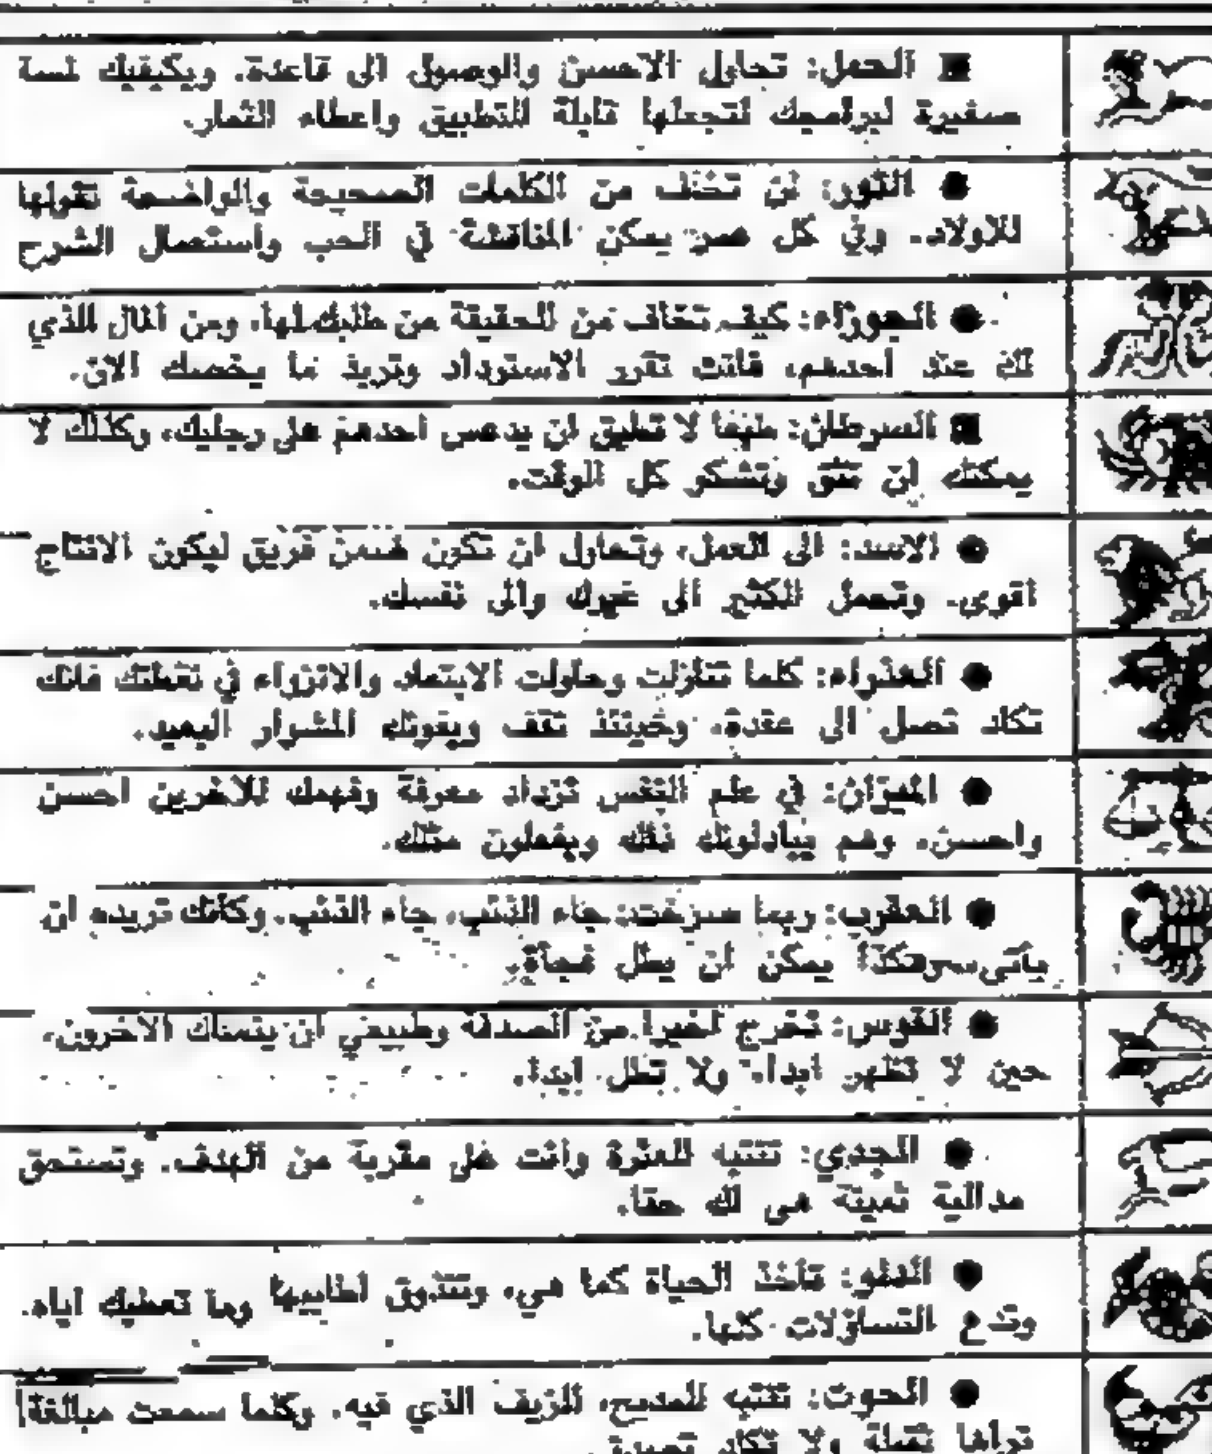 ■ الحمل: تحاول الاحسن والوصول الى قاعدة. ويكيفيك لمسة
صغيرة لبرامجك لتجعلها قابلة للتطبيق واعطاء الثمار.
● الثور: لن تخف من الكلمات الصحيحة والواضحة تقولها
للاولاد. وفي كل عمر يمكن المناقشة في الحب واستعمال الشرح
● الجوزاء: كيف تخاف من الحقيقة من طلبك لها. ومن المال الذي
لك عند احدهم، فانت تقرر الاسترداد وتريد ما يخصك الان.
■ السرطان: طبعا لا تطيق ان يدعس احدهم على رجليك، وكذلك لا
يمكنك ان تئن وتشكو كل الوقت.
● الاسد: الى العمل، وتحاول ان تكون ضمن فريق ليكون الانتاج
اقوى. وتحمل الكثير الى غيرك والى نفسك.
● العذراء: كلما تنازلت وحاولت الابتعاد والانزواء في فانك
تكاد تصل الى عقدة، وحينئذ تقف ويفوتك المشوار البعيد.
● الميزان: في علم النفس تزداد معرفة وفهمك للاخرين احسن
واحسن. وهم يبادلونك ذلك ويفعلون مثلك.
● العقرب: ربما صرخت: جاء الذئب، جاء الذئب. وكأنك تريده ان
ياتي هكذا يمكن ان يطل فجأة.
● القوس: تخرج اخيرا من الصدفة وطبيعي ان يتمناك الاخرون،
حين لا تظهر ابدا. ولا تطل ابدا.
● الجدي: تنتبه للعثرة وانت على مقربة من الهدف. وتستحق
مدالية ثمينة هي لك حقا.
● الدلو: تأخذ الحياة كما هي، وتتذوق اطاييبها وما تعطيك اياه.
وتدع التساؤلات كلها.
● الحوت: تنتبه للمديح، للزيف الذي فيه. وكلما سمعت مبالغة
تراها ثقيلة ولا تكاد